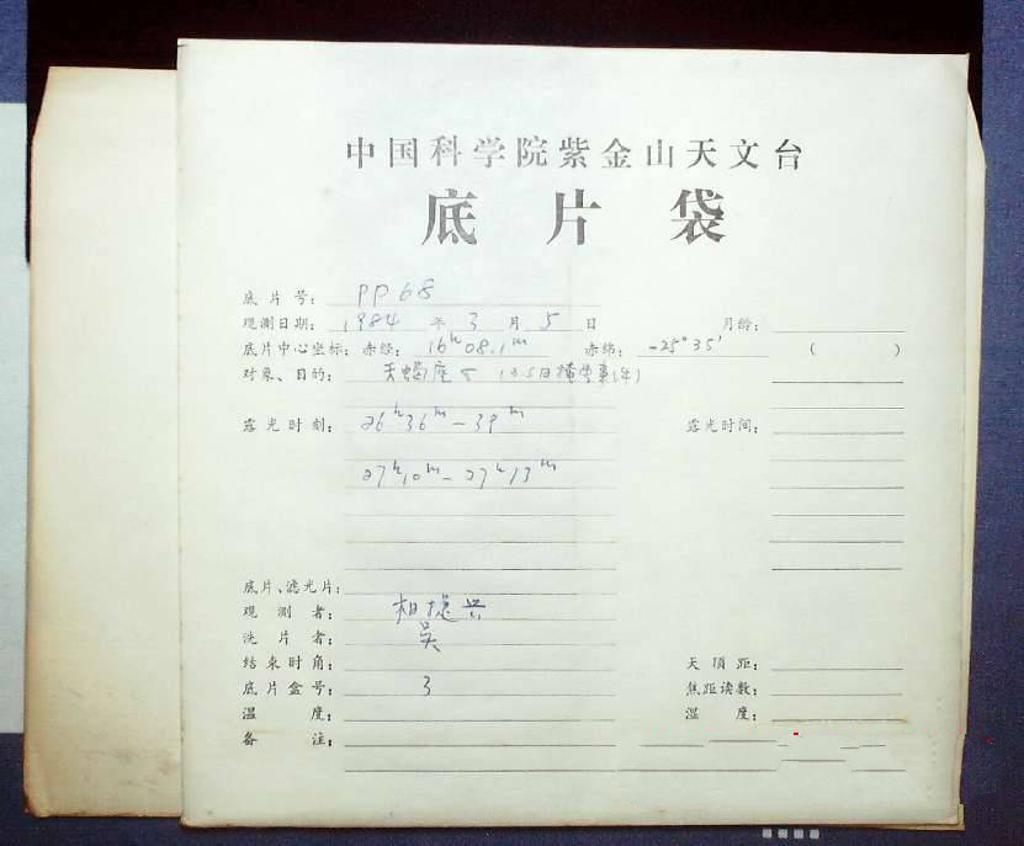 中国科学院紫金山天文台
底片袋
底片号： PP 68
观测日期： 1984 年 3 月 5 日 月龄：
底片中心坐标：赤经： 16h 08.1m 赤纬： -25° 35' ( )
对象、目的： 天蝎座
露光时刻： 26h 36m - 39m 露光时间：
27h 10m - 27h 13m
底片、滤光片：
观测者：
洗片者： 吴
结束时角： 天顶距：
底片盒号： 3 焦距读数：
温度： 湿度：
备注：